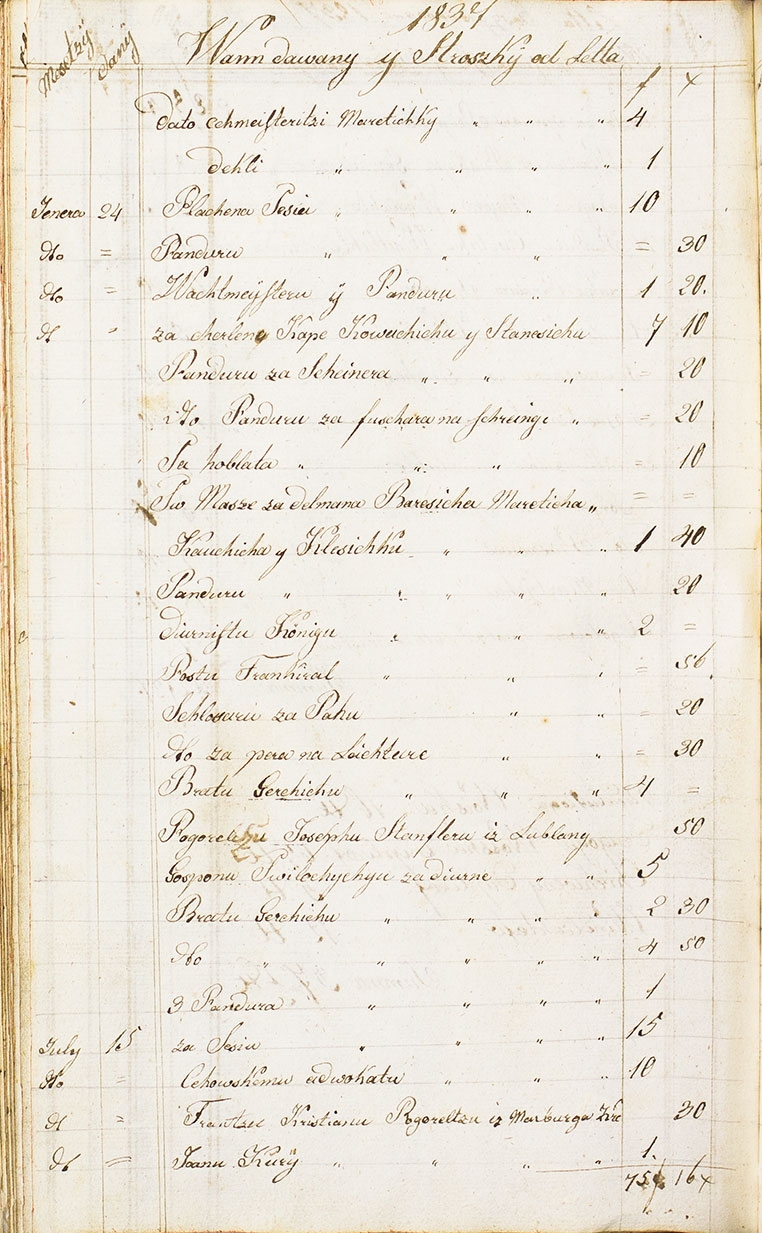 1837
Mesetzÿ danÿ Wann dawany y Stroszkÿ od Letta
f x
Dato cehmeisteritzi Maretichky " " " 4
Dekli " " " " 1
Jenera 24 Plachena Sesia " " " 10
dto = Panduru " " " = 30
dto = Wachtmeÿsteru ÿ Panduru " 1 20.
dt " za cherlene Kape Kowachichu y Stanesichu 7 10
Panduru za Scheinera " " " = 20
i dto Panduru za fuschara na schreingi " = 20
Sa hoblata " " " = 10
Sw Masze za delmana Baresicha Mareticha " = =
Kauchicha y Klesichku " " " 1 40
Panduru " " " " " 20
Diurnistu Königu " " " 2 =
Postu Frankiral " " " = 56
Schlosaru za Paku " " = 20
dto za pera na Leichture " " = 30
Bratu Gerchichu " " " 4 =
Josephu Stanfleru iz Lublany 50
Gosponu Swilochychyu za diurne " " 5
Bratu Gerchichu " " " " 2 30
dto " " " " " 4 50
3 Pandura " " " " 1
July 15 za Sesiu " " " " 15
dto = Cehowskemu adwokatu " " " 10
dt = Frantzu Kristianu Pogoreltzu iz Marburga 30
dt = Joanu Kurÿ " " " 1.
75f 16x